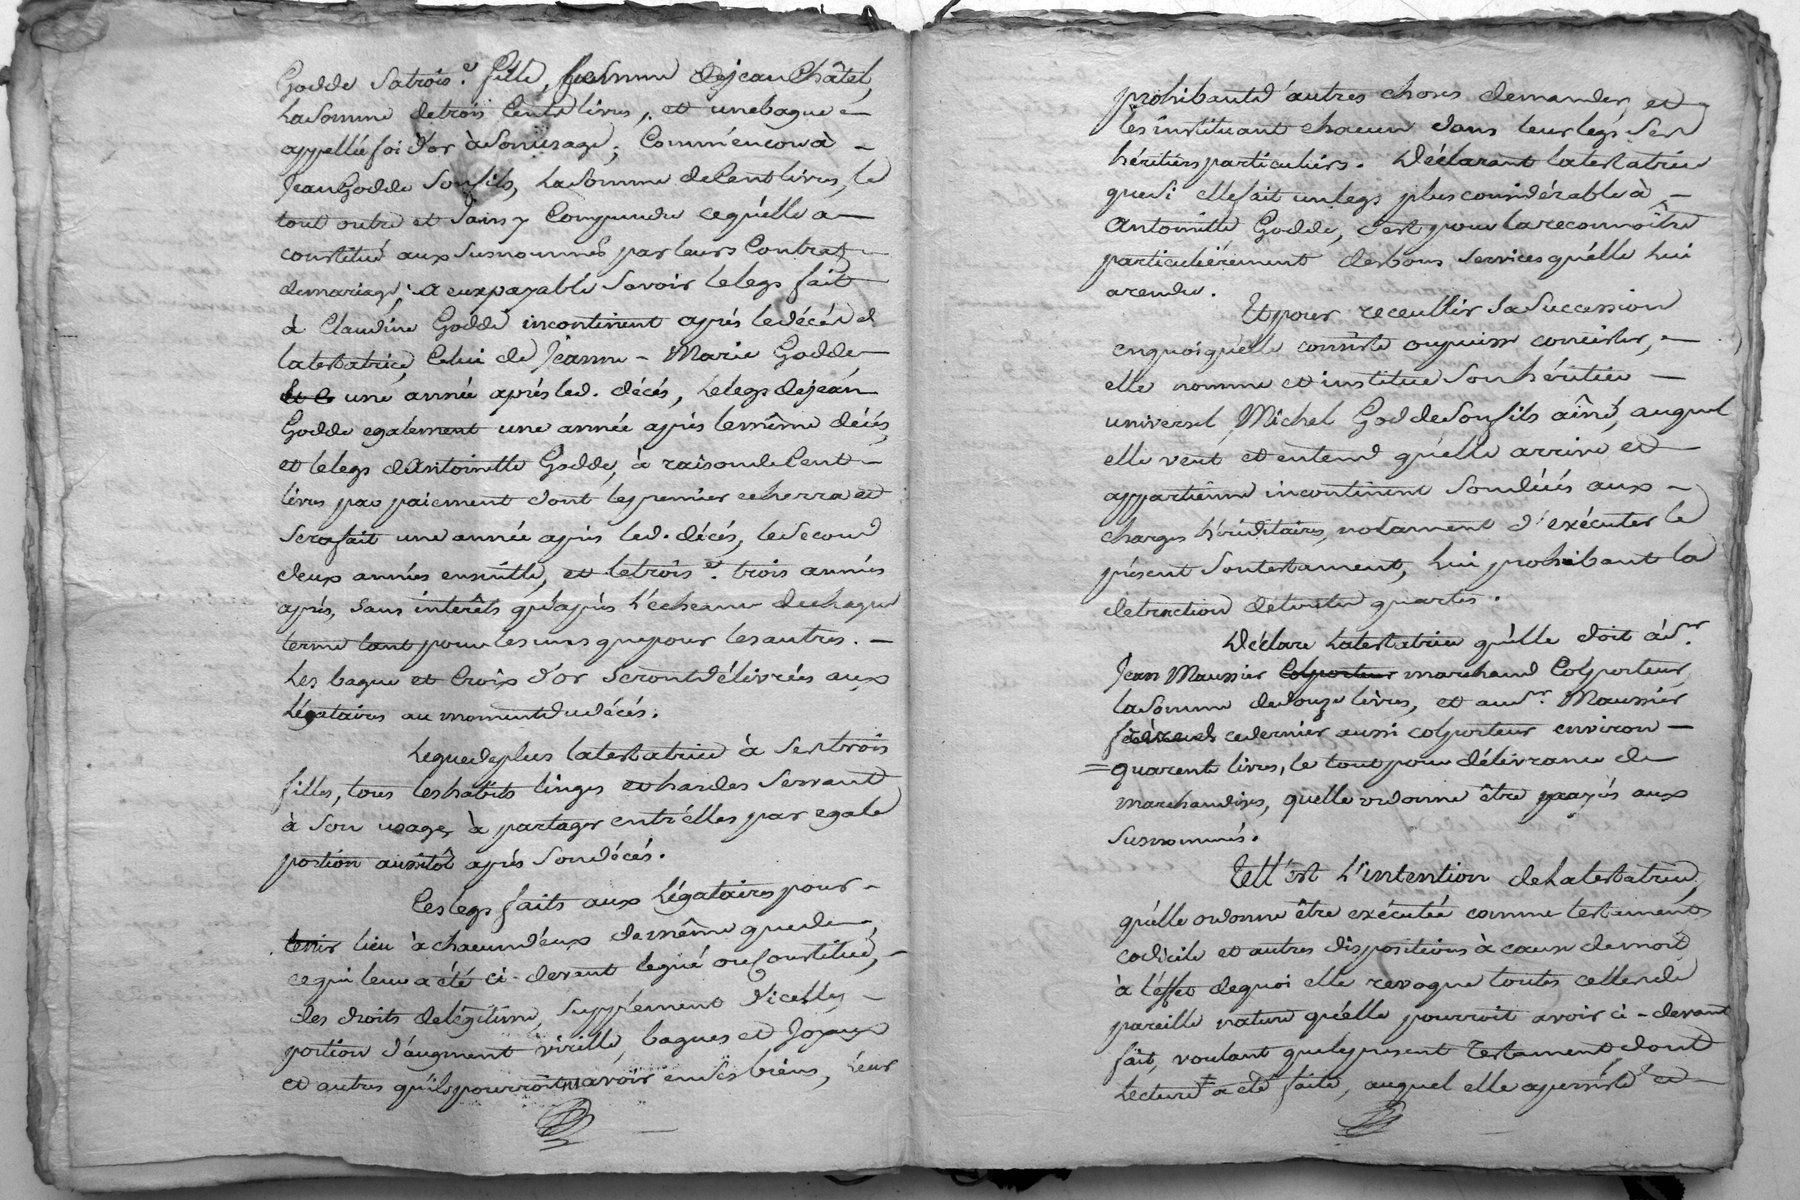 Godde Sa trois.e fille, femme de jean Châtel,
La Somme de trois Cents livres, et une bague
appellée foi d'or à Son usage;
Jean Godde Son fils, La Somme de Cent livres, le
tout outre et Sans y Comprendre ce qu'elle a
constitué aux Susnommés par leurs Contrats
de mariage; a eux payable Savoir le legs fait
à Claudine Godde incontinent après le décés de
la testatrice, Celui de Jeanne-Marie Godde
une année aprés led. décés, Le legs de jean
Godde egalement une année aprés le même décés,
et le legs d'Antoinette Godde, à raison de Cent
livres par paiement dont le premier echerra et
Sera fait une année aprés led. décés, le Second
deux années ensuitte, et le trois.e trois années
aprés, Sans intérêts qu'aprés L'écheance de chaque
terme tant pour les uns que pour les autres.
Les bague et Croix d'or Seront délivrées aux
Légataires au moment du décés.
Legue de plus la testatrice à Ses trois
filles, tous les habits linges et hardes Servant
à Son usage, à partager entr'elles par egale
portion aussitôt aprés Son décés.
Les legs faits aux Légataires pour
tenir lieu à chacun d'eux de même que de
ce qui leur a été ci-devant legué ou Constitué,
des droits de légitime, Supplément d'icelles,
portion d'augment virille, bagues et Joyaux
et autres qu'ils pourroient avoir en Ses biens, Leur
prohibant d'autres choses demander, et
les instituant chacun dans leur legs Ses
héritiers particuliers. Déclarant la testatrice
que Si elle fait un legs plus considérable à
Antoinette Godde, c'est pour la reconnoître
particulièrement des bons Services qu'elle Lui
a rendu.
Et pour receuillir Sa Succession
en quoi qu'elle consiste ou puisse consister,
elle nomme et institue Son héritier
universel Michel Godde Son fils aîné, auquel
elle veut et entend qu'elle arrive et
appartienne incontinent Son décés aux
charges héréditaires, notament d'exécuter le
présent Son testament, Lui prohibant la
detraction de toutes quartes.
Déclare La testatrice qu'elle doit à S.r
Jean Maussier Colporteur marchand Colporteur,
la Somme de douze livres, et au S.r Maussier
ce dernier aussi colporteur environ
=quarente livres, le tout pour délivrance de
marchandises, qu'elle ordonne être payés aux
Susnommés.
Tell'est L'intention de La testatrice,
qu'elle ordonne être exécutée comme testament,
codicile et autres dispositions à cause de mort,
à l'effet de quoi elle revoque toutes celles de
pareille nature qu'elle pourroit avoir ci-devant
fait, voulant que le present testament dont
Lecture a été faite, auquel elle a persisté et